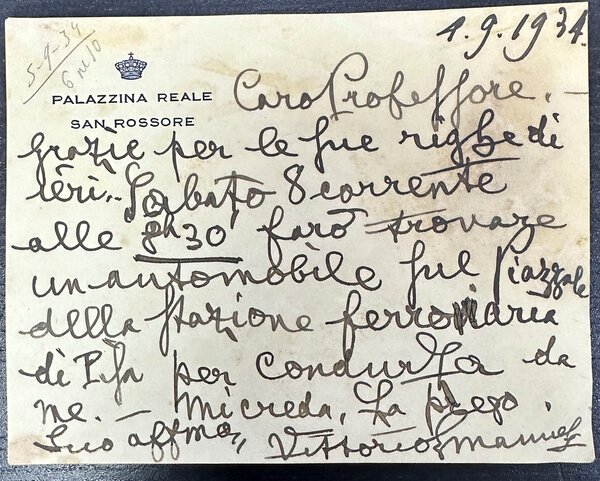 5-9-34
6 re 10
4.9.1934.
PALAZZINA REALE
SAN ROSSORE
Caro Professore. —
grazie per le sue righe di
ieri.. Sabato 8 corrente
alle 8h 30, farò trovare
un automobile sul Piazzale
della stazione ferroviaria
di Pisa per condurLa da
me. — Mi creda, La prego.
Suo affmo, Vittorio Emanuele